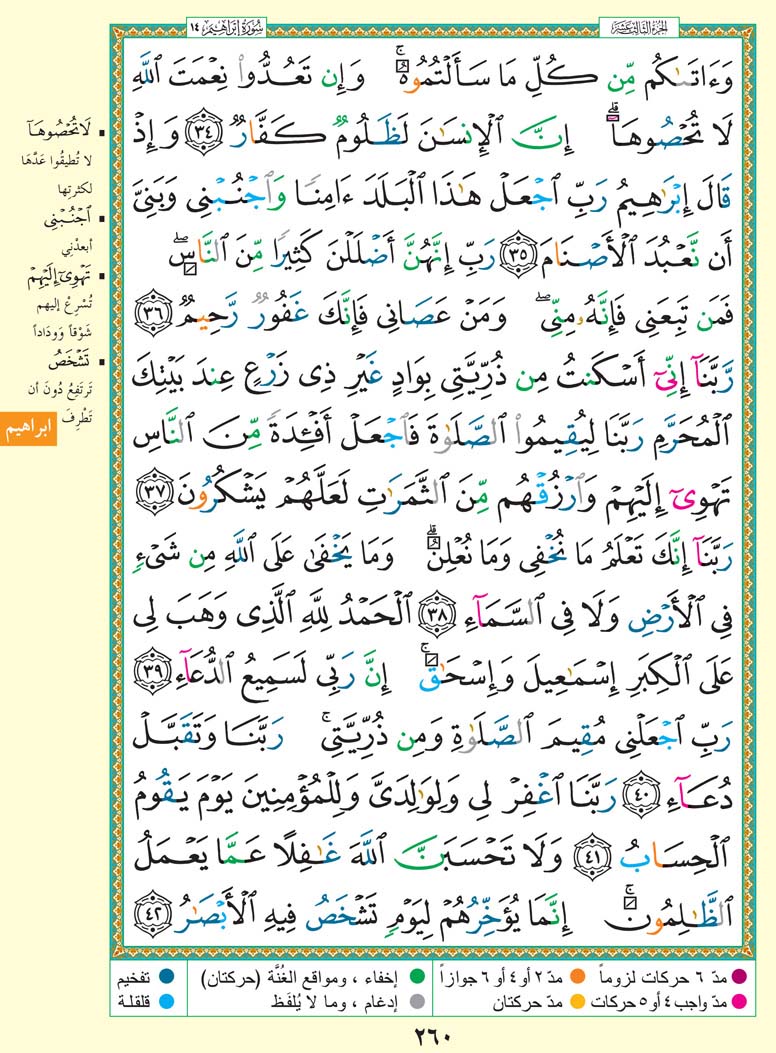 الجزء الثالث عشر
سورة إبراهيم ١٤
وَءَاتَىٰكُم مِّن كُلِّ مَا سَأَلْتُمُوهُ ۚ وَإِن تَعُدُّوا۟ نِعْمَتَ ٱللَّهِ
لَا تُحْصُوهَآ ۗ إِنَّ ٱلْإِنسَٰنَ لَظَلُومٌ كَفَّارٌ ٣٤ وَإِذْ
قَالَ إِبْرَٰهِيمُ رَبِّ ٱجْعَلْ هَٰذَا ٱلْبَلَدَ ءَامِنًا وَٱجْنُبْنِى وَبَنِىَّ
أَن نَّعْبُدَ ٱلْأَصْنَامَ ٣٥ رَبِّ إِنَّهُنَّ أَضْلَلْنَ كَثِيرًا مِّنَ ٱلنَّاسِ ۖ
فَمَن تَبِعَنِى فَإِنَّهُۥ مِنِّى ۖ وَمَنْ عَصَانِى فَإِنَّكَ غَفُورٌ رَّحِيمٌ ٣٦
رَّبَّنَآ إِنِّىٓ أَسْكَنتُ مِن ذُرِّيَّتِى بِوَادٍ غَيْرِ ذِى زَرْعٍ عِندَ بَيْتِكَ
ٱلْمُحَرَّمِ رَبَّنَا لِيُقِيمُوا۟ ٱلصَّلَوٰةَ فَٱجْعَلْ أَفْـِٔدَةً مِّنَ ٱلنَّاسِ
تَهْوِىٓ إِلَيْهِمْ وَٱرْزُقْهُم مِّنَ ٱلثَّمَرَٰتِ لَعَلَّهُمْ يَشْكُرُونَ ٣٧
رَبَّنَآ إِنَّكَ تَعْلَمُ مَا نُخْفِى وَمَا نُعْلِنُ ۗ وَمَا يَخْفَىٰ عَلَى ٱللَّهِ مِن شَىْءٍ
فِى ٱلْأَرْضِ وَلَا فِى ٱلسَّمَآءِ ٣٨ ٱلْحَمْدُ لِلَّهِ ٱلَّذِى وَهَبَ لِى
عَلَى ٱلْكِبَرِ إِسْمَٰعِيلَ وَإِسْحَٰقَ ۚ إِنَّ رَبِّى لَسَمِيعُ ٱلدُّعَآءِ ٣٩
رَبِّ ٱجْعَلْنِى مُقِيمَ ٱلصَّلَوٰةِ وَمِن ذُرِّيَّتِى ۚ رَبَّنَا وَتَقَبَّلْ
دُعَآءِ ٤٠ رَبَّنَا ٱغْفِرْ لِى وَلِوَٰلِدَىَّ وَلِلْمُؤْمِنِينَ يَوْمَ يَقُومُ
ٱلْحِسَابُ ٤١ وَلَا تَحْسَبَنَّ ٱللَّهَ غَٰفِلًا عَمَّا يَعْمَلُ
ٱلظَّٰلِمُونَ ۚ إِنَّمَا يُؤَخِّرُهُمْ لِيَوْمٍ تَشْخَصُ فِيهِ ٱلْأَبْصَٰرُ ٤٢
▪ لَا تُحْصُوهَآ
لا تُطيقُوا عَدَّهَا
لكثرتِها
▪ ٱجْنُبْنِى
أبعدْنِي
▪ تَهْوِىٓ إِلَيْهِمْ
تُسْرِعُ إليهم
شَوْقاً وَوِدَاداً
▪ تَشْخَصُ
تَرتَفِعُ دُونَ أن
تَطْرِفَ
ابراهيم
مدّ ٦ حركات لزوماً
مدّ ٢ أو ٤ أو ٦ جوازاً
إخفاء ، ومواقع الغُنَّة (حركتان)
تفخيم
مدّ واجب ٤ أو ٥ حركات
مدّ حركتان
إدغام ، وما لا يُلفَظ
قلقلة
٢٦٠